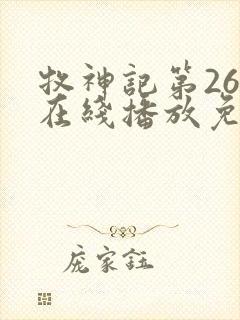 牧神記第26
在綫播放免
庞家鈺